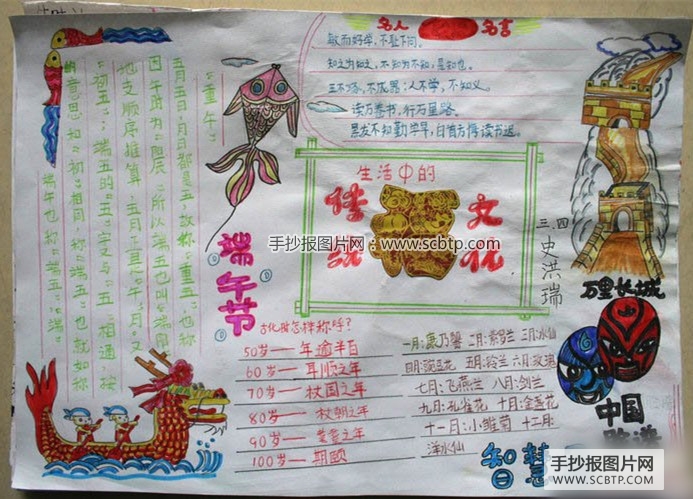 名人
名言
敏而好学，不耻下问。
知之为知之，不知为不知，是知也。
玉不琢，不成器；人不学，不知义。
读万卷书，行万里路。
黑发不知勤学早，白首方悔读书迟。
"重午"
五月五日，月日都是五，故称"重五"，也称
因午时为"阳辰"，所以端五也叫"端阳"
地支顺序推算，五月正是"午"月。又
"初五"；端五的"五"字又与"午"相通，按
的意思和"初"相同，称"端五"也就如称
端午也称"端五"，"端
端午节
生活中的
传统
文化
手抄报图片网：www.scbtp.com
三.四
史洪瑞
万里长城
古代人怎样称呼？
50岁——年逾半百
60岁——耳顺之年
70岁——杖国之年
80岁——杖朝之年
90岁——耄耋之年
100岁——期颐
一月：康乃馨 二月：紫罗兰 三月：水仙
四月：豌豆花 五月：铃兰 六月：玫瑰
七月：飞燕兰 八月：剑兰
九月：孔雀花 十月：金莲花
十一月：小雏菊 十二月：
洋水仙
中国
智慧
手抄报图片网
SCBTP.COM